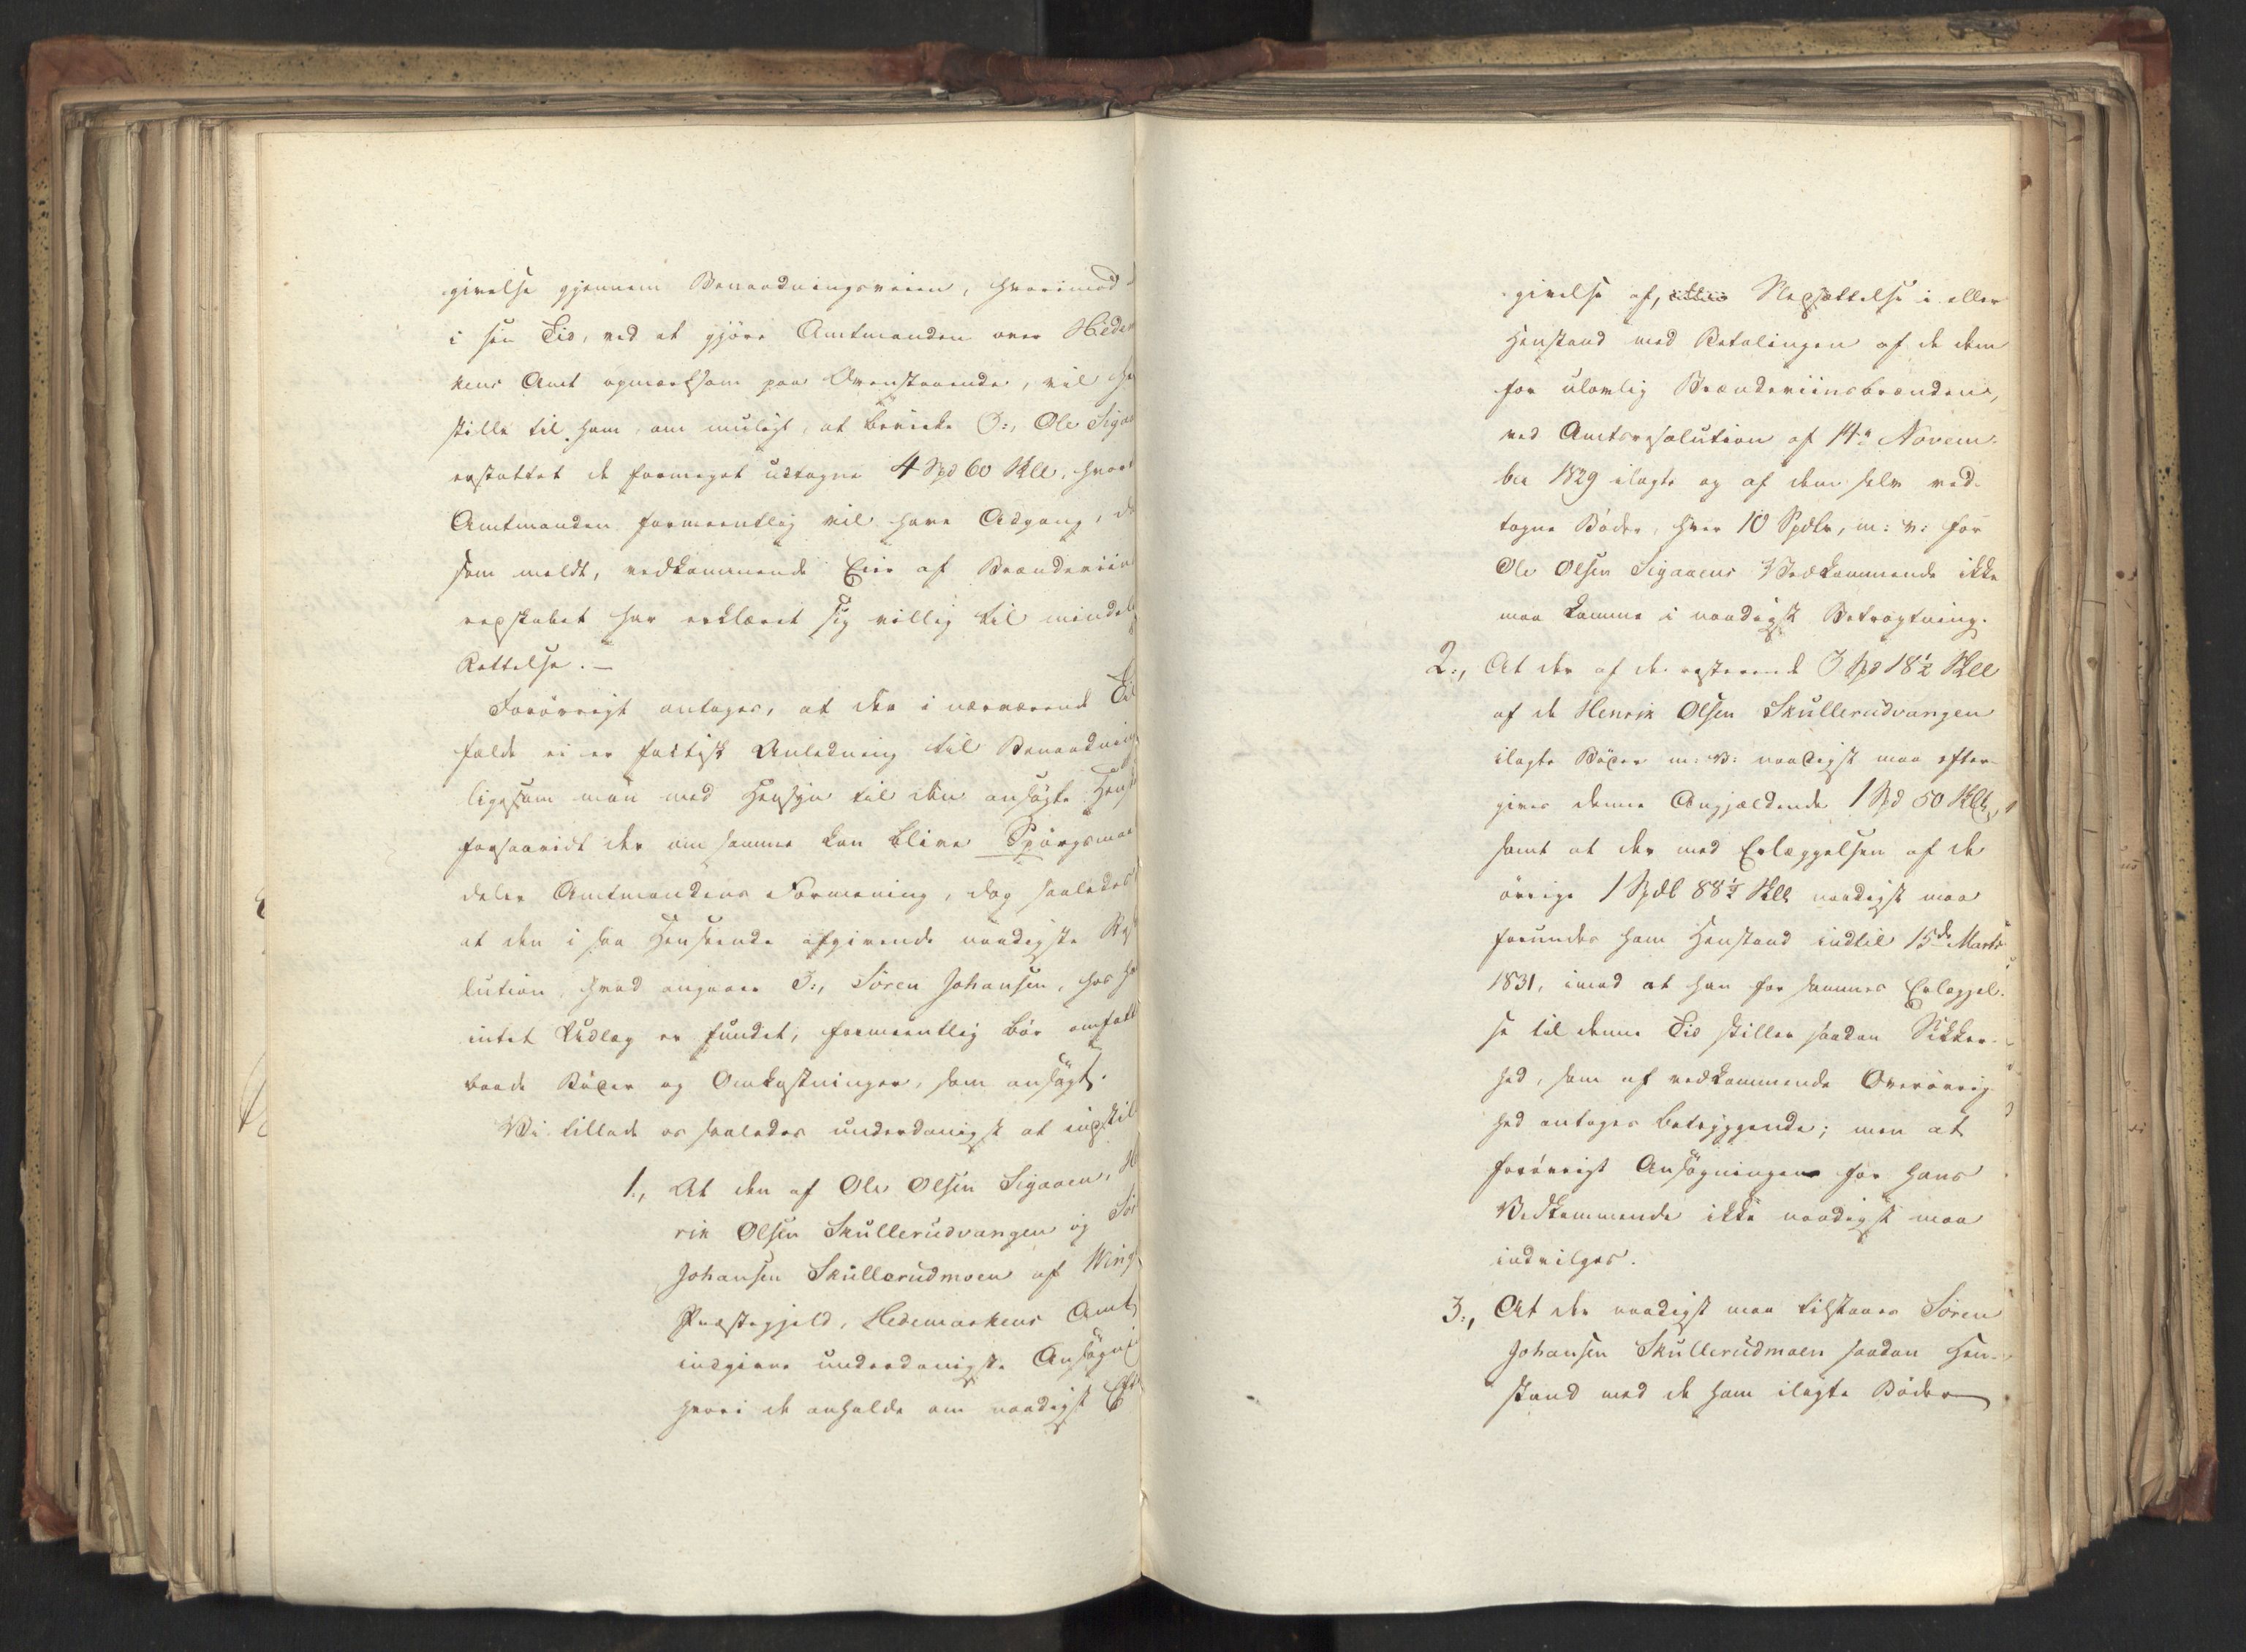 givelse gjennem Benaadningsveien, hvorimod
i sin Tid, ved at gjøre Amtmanden over Hede
kens Amt opmærksom paa Ovenstaaende, vil
stille til ham, om muligt, at bevirke O:, Ole Sigaa
erstattet de formeget udtagne 4 Spd 60 Skll, hvor
Amtmanden formeentlig vil have Adgang, d
som meldt, vedkommende Eier af Brændeviin
redskabet har erklæret sig villig til mindel
Rettelse. —
Forøvrigt antages, at der i nærværende Til
fælde ei er factisk Anledning til Benaadning
ligesom man med Hensyn til den ansøgte Hens
forsaavidt der om samme kan blive Spørgsmaa
deler Amtmandens Formening, dog saaledes
at den i saa Henseende afgivende naadigste Res
lution, hvad angaaer S:, Søren Johansen, hos h
intet Udlæg er fundet, formeentlig bør omfatt
baade Bøder og Omkostninger, som ansøgt.
Vi tillade os saaledes underdanigst at indstil
1., At den af Ole Olsen Sigaaen, H
rik Olsen Skullerudvangen og Sör
Johansen Skullerudmoen af Wing
Præstegjeld, Hedemarkens Amt
indgivne underdanigste Ansøgni
hvori de anholde om naadigst Eft
givelse af, Nedsættelse i eller
Henstand med Betalingen af de dem
for ulovlig Brændeviinsbrænden,
ved Amtsresolution af 14de Novem-
ber 1829 ilagte og af dem selv ved-
tagne Bøder, hver 10 Spdlr, m: v: for
Ole Olsen Sigaaens Vedkommende ikke
maa komme i naadigst Betragtning.
2., At der af de resterende 3 Spd 18½ Skll
af de Henrik Olsen Skullerudvangen
ilagte Bøder m: v: naadigst maa efter-
gives denne Angjældende 1 Spd 50 Skll,
samt at der med Erlæggelsen af de
øvrige 1 Spdl 88½ Skll naadigst maa
forundes ham Henstand indtil 15de Marts
1831, imod at han for sammes Erlæggel-
se til denne Tid stiller saadan Sikker-
hed, som af vedkommende Overøvrig-
hed antages betryggende; men at
forøvrigt Ansøgningen for hans
Vedkommende ikke naadigst maa
indvilges.
3., At der naadigst maa tilstaaes Søren
Johansen Skullerudmoen saadan Hen-
stand med de ham ilagte Bøder